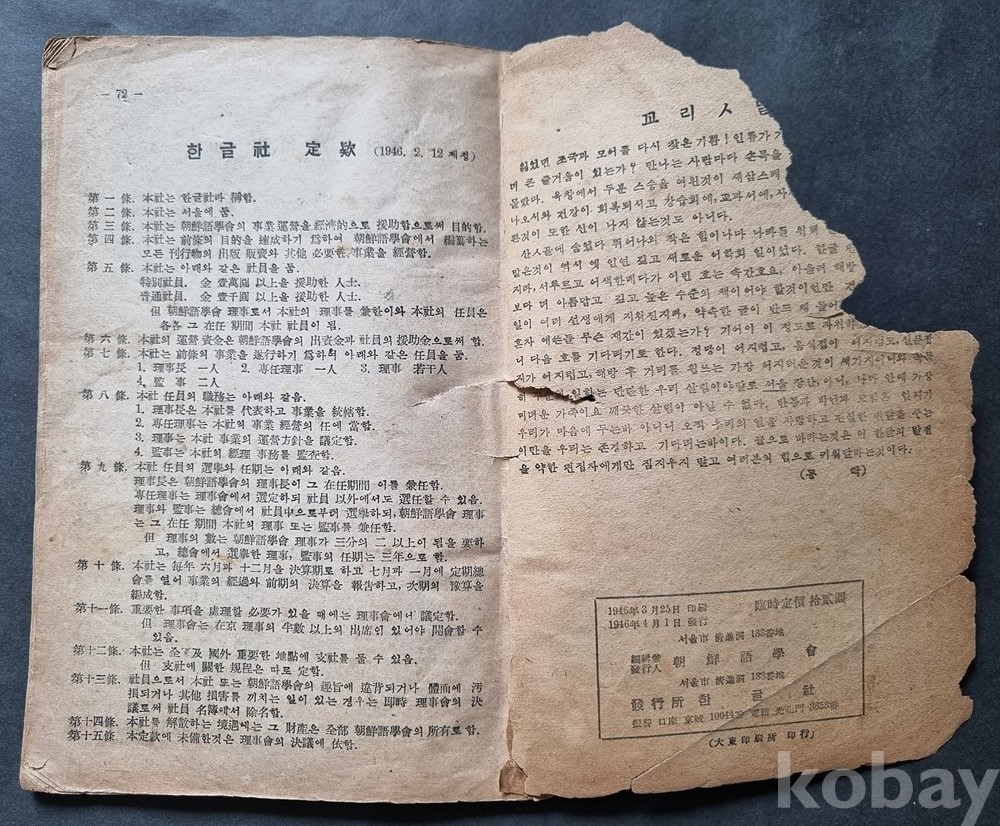 — 72 —
한글社 定款 (1946. 2. 12 제정)
第一條. 本社는 한글社라 稱함.
第二條. 本社는 서울에 둠.
第三條. 本社는 朝鮮語學會의 事業 運營을 經濟的으로 援助함으로써 目的함.
第四條. 本社는 前條의 目的을 達成하기 爲하여 朝鮮語學會에서 編纂하는
모든 刊行物의 出版 販賣와 其他 必要한 事業을 經營함.
第五條. 本社는 아래와 같은 社員을 둠.
特別社員. 金 壹萬圓 以上을 援助한 人士.
普通社員. 金 壹千圓 以上을 援助한 人士.
但 朝鮮語學會 理事로서 本社의 理事를 兼한이와 本社의 任員은
各各 그 在任 期間 本社 社員이 됨.
第六條. 本社의 運營 資金은 朝鮮語學會의 出資金과 社員의 援助金으로써 함.
第七條. 本社는 前條의 事業을 遂行하기 爲하여 아래와 같은 任員을 둠.
1. 理事長 一人 2. 專任理事 一人 3. 理事 若干人
4. 監事 二人
第八條. 本社 任員의 職務는 아래와 같음.
1. 理事長은 本社를 代表하고 事業을 統轄함.
2. 專任理事는 本社 事業 經營의 任에 當함.
3. 理事는 本社 事業의 運營方針을 議定함.
4. 監事는 本社의 經理 事務를 監査함.
第九條. 本社 任員의 選擧와 任期는 아래와 같음.
理事長은 朝鮮語學會의 理事長이 그 在任期間 이를 兼任함.
專任理事는 理事會에서 選定하되 社員 以外에서도 選任할 수 있음.
理事와 監事는 總會에서 社員中으로부터 選擧하되, 朝鮮語學會 理事
는 그 在任 期間 本社의 理事 또는 監事를 兼任함.
但 理事의 數는 朝鮮語學會 理事가 三分의 二 以上이 됨을 要하
고, 總會에서 選擧한 理事, 監事의 任期는 三年으로 함.
第十條. 本社는 每年 六月과 十二月을 決算期로 하고 七月과 一月에 定期總
會를 열어 事業의 經過와 前期의 決算을 報告하고, 次期의 豫算을
編成함.
第十一條. 重要한 事項을 處理할 必要가 있을 때에는 理事會에서 議定함.
但 理事會는 在京 理事의 半數 以上의 出席이 있어야 開會할 수
있음.
第十二條. 本社는 全國及 國外 重要한 地點에 支社를 둘 수 있음.
但 支社에 關한 規程은 따로 定함.
第十三條. 社員으로서 本社 또는 朝鮮語學會의 趣旨에 違背되거나 體面에 汚
損되거나 其他 損害를 끼치는 일이 있는 경우는 即時 理事會의 決
議로써 社員 名簿에서 除名함.
第十四條. 本社를 解散하는 境遇에는 그 財產은 全部 朝鮮語學會의 所有로 함.
第十五條. 本定款에 未備한것은 理事會의 決議에 依함.
꼬리ㅅ
잃었던 조국과 모어를 다시 찾은 기쁨! 인류가
며 큰 즐거움이 있는가? 만나는 사람마다 손목을
몰랐다. 옥창에서 두분 스승을 여읜것이 새삼스레
나오시와 건강이 회복되시고 강습회에, 교과서에, 사
된것이 또한 신이 나지 않는것도 아니다.
맡은것이 역시 옛 인연 깊고 새로운 어학회 일이었다. 한글
지마, 서투르고 어색한데다가 이번 호는 속간호요, 아울러 해방
보다 더 아름답고 깊고 높은 수준의 책이어야 할것이언만
일이 여러 선생에게 지워진지라, 약속한 글이 반드시 제
혼자 애쓴들 무슨 재간이 있겠는가? 기어이 이 정도로 자위하
니 다음 호를 기다리기로 한다. 정당이 어지럽고, 음식점이 어지럽고, 신문잡
지가 어지럽고, 해방 후 거리를 휩쓰는 가장 어지러운것이
우리가 마음에 두는바 아니니 오직 우리의 일을 사랑하고
이만을 우리는 존경하고 기다리는바이다. 끝으로 바라는것은 이 한글의 발전
을 약한 편집자에게만 짐지우지 말고 여러분의 힘으로 키워달라는것이다.
1946年 3月 25日 印刷 臨時定價 拾貳圓
1946年 4月 1日 發行
서울市 淸進洞 183番地
編輯兼
發行人 朝鮮語學會
서울市 淸進洞 183番地
發行所 한글社
振替 口座 京城 10044番 電話 光化門 3653番
(大東印刷所 印行)
kobay